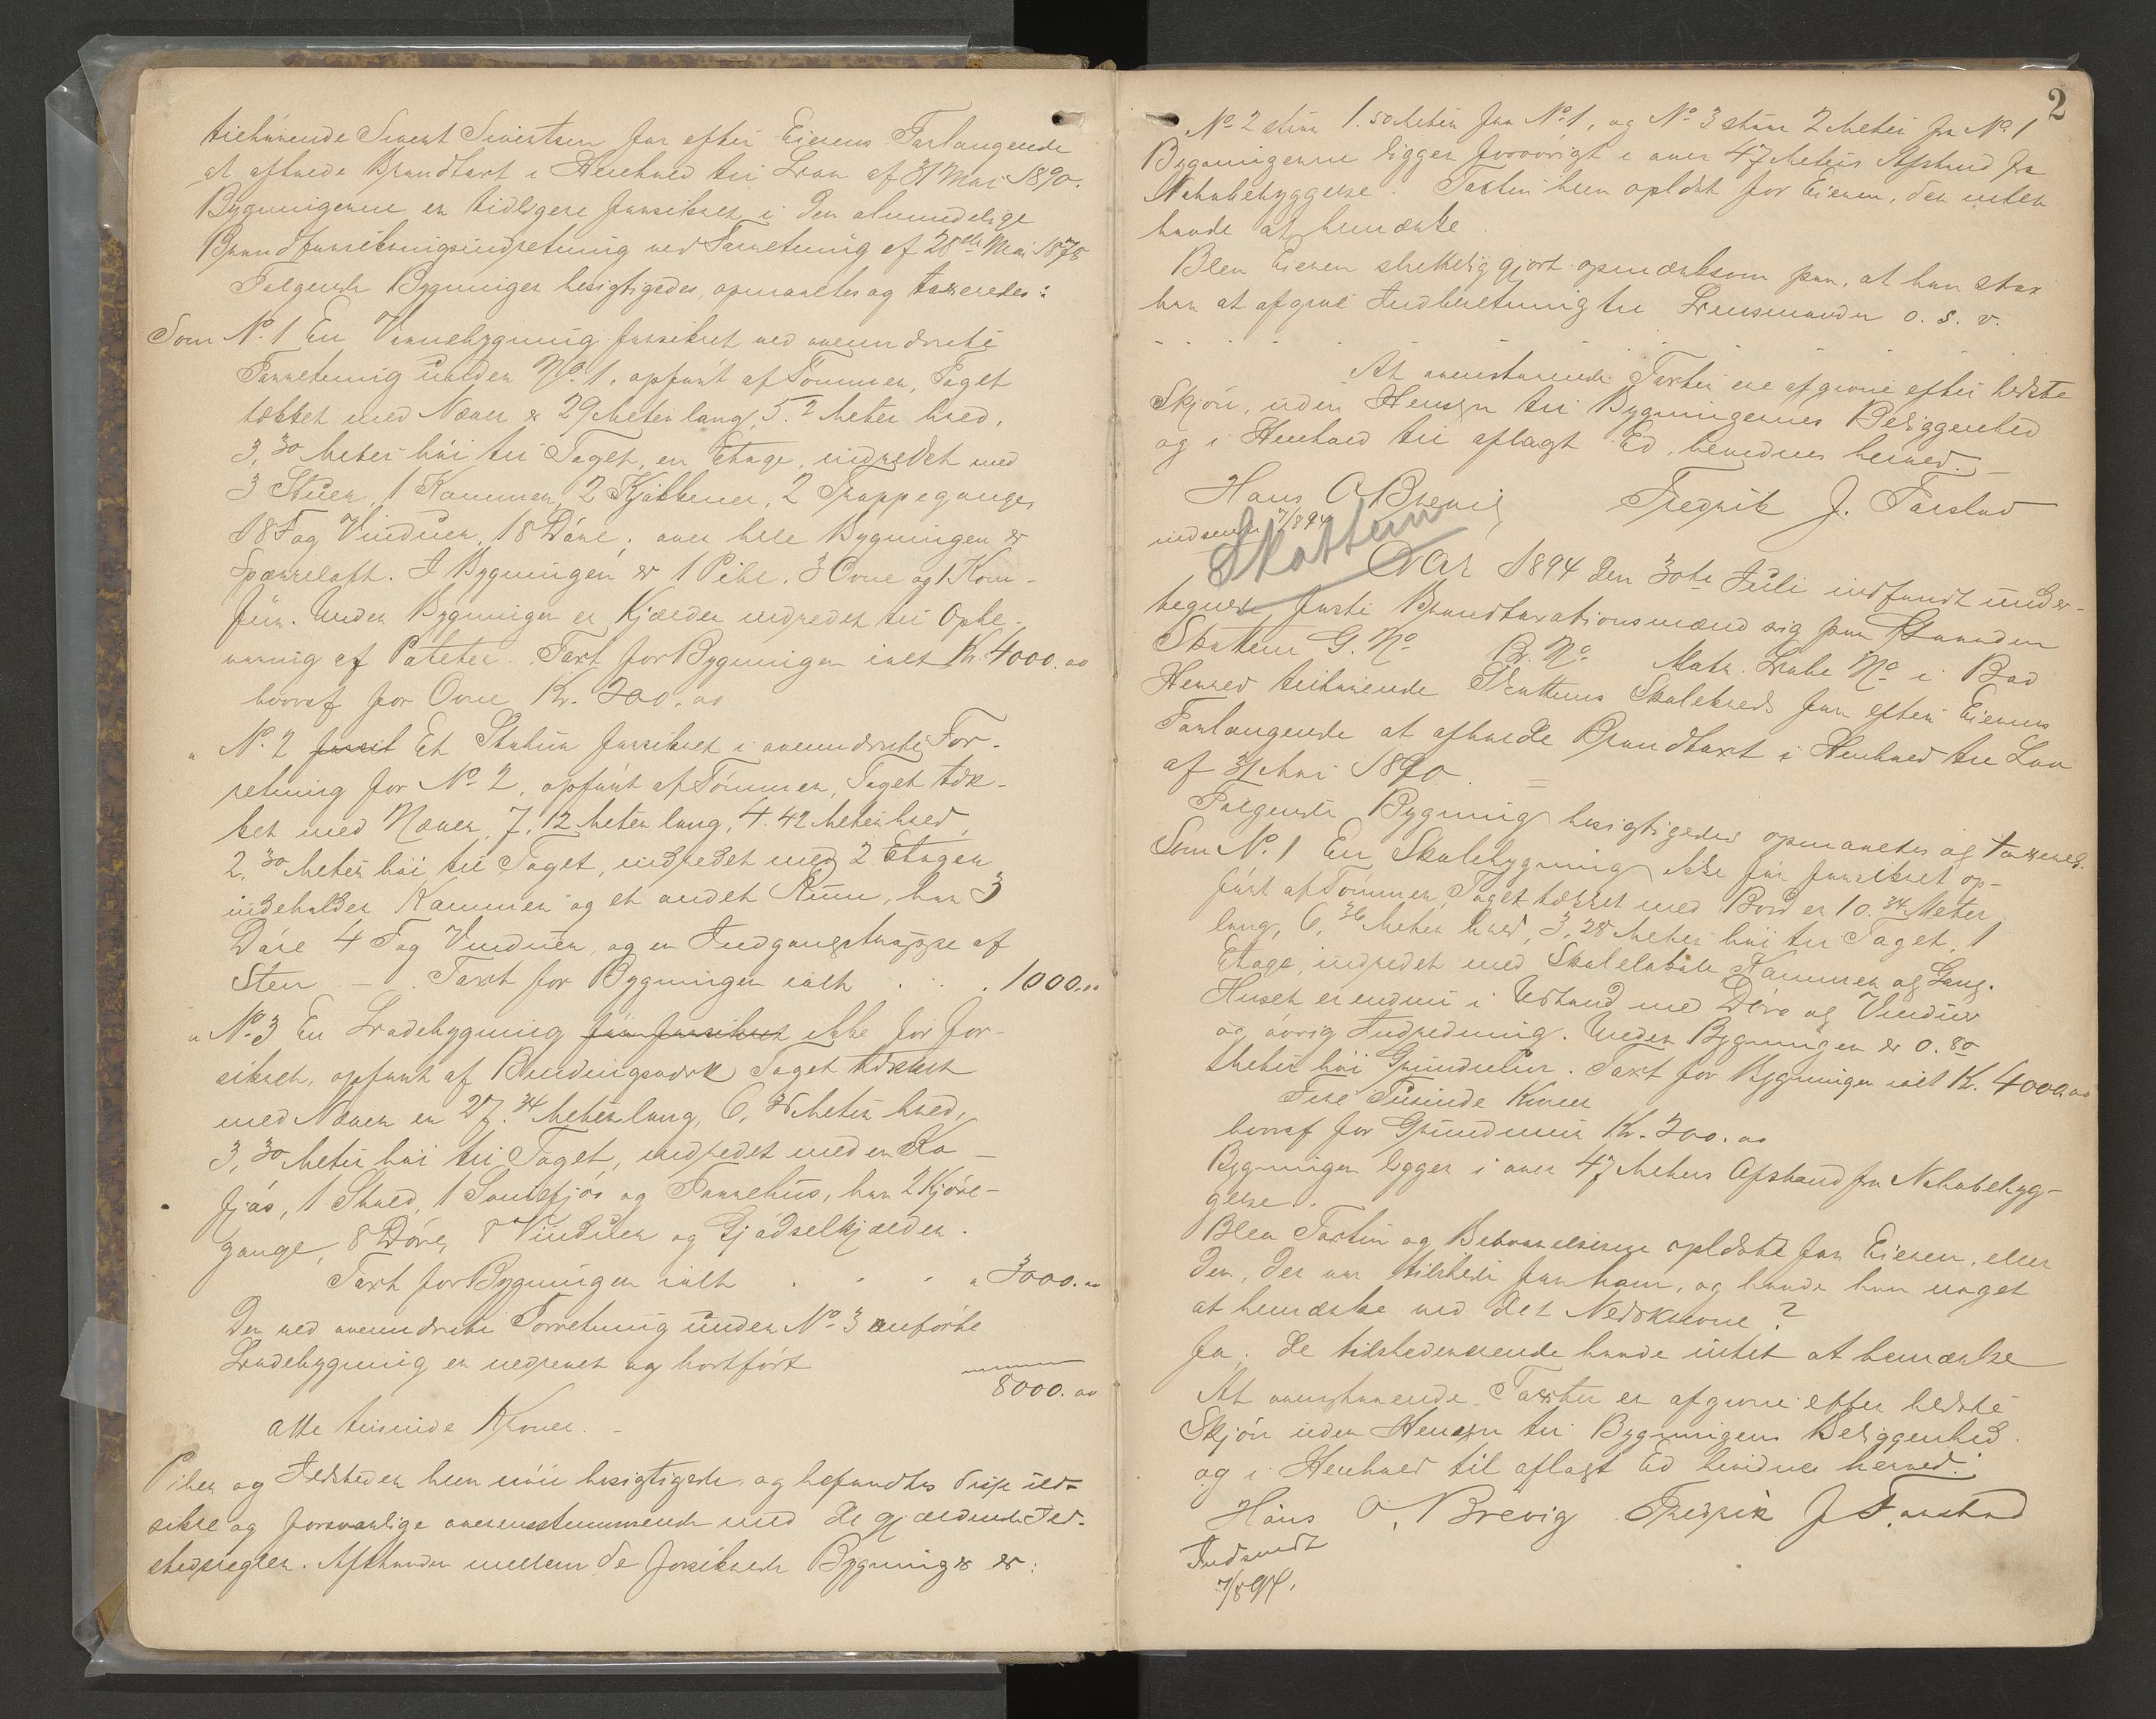 tilhørende Sivert Sivertsen for efter Eierens Forlangende
at afholde Brandtaxt i Henhold til Lov af 31 Mai 1890.
Bygningerne er tidligere forsikret i den almindelige
Brandforsikringsindretning ved Forretning af 28de Mai 1878
Følgende Bygninger besigtigedes, opmaaltes og taxeredes:
Som No. 1 En Vaanebygning forsikret ved ovenndvnte
Forretning under No. 1, opført af Tømmer, Taget
tækket med Næver er 29 Meter lang, 5.2 Meter bred,
3,30 Meter høi til Taget, en Etage, indredet med
3 Stuer, 1 Kammer, 2 Kjøkkener, 2 Trappegange,
18 Fag Vinduer, 18 Døre; over hele Bygningen er
Spærreloft. I Bygningen er 1 Pibe, 3 Ovne og 1 Kom-
fur. Under Bygningen er Kjælder indredet til Opbe-
varing af Poteter. Taxt for Bygningen ialt Kr. 4000.00
hvoraf for Ovne Kr. 200.00
" No. 2 forsik Et Stabur forsikret i ovenndvnte For-
retning for No. 2, opført af Tømmer, Taget tæk-
ket med Næver, 7,12 Meter lang, 4.42 Meter bred,
2,30 Meter høi til Taget, indredet med 2 Etager
indeholder Kammer og et andet Rum, har 3
Døre 4 Fag Vinduer, og en Indgangstrappe af
Sten – . Taxt for Bygningen ialt . . . 1000.00
" No. 3 En Ladebygning før forsikret ikke før for-
sikret, opført af Bindingsværk Taget tækket
med Næver er 27.34 Meter lang, 6, Meter bred,
3,30 Meter høi til Taget, indredet med en Ko-
fjøs, 1 Stald, 1 Sauefjøs og Foerehus, har 2 Kjøre-
gange, 8 Døre, 8 Vinduer og Gjødselkjælder.
Taxt for Bygningen ialt . . . " 3000.00
Den ved ovenndvnte Forretning under No. 3 anførte
Ladebygning er nedrevet og bortført
8000.00
otte tusinde Kroner. –
Piber og Ildsteder blev nøie besigtigede, og befandtes disse ild-
sikre og forsvarlige overensstemmende med de gjældende Ild-
stedsregler. Afstanden mellem de forsikrede Bygninger er:
2
No. 2 staar 1.50 Meter fra No. 1, og No. 3 staar 2 Meter fra No. 1
Bygningerne ligger forøvrigt i over 47 Meters Afstand fra
Nabobebyggelse. Taxten blev oplæst for Eieren, der intet
havde at bemærke.
Blev Eieren skriftelig gjort opmærksom paa, at han strax
har at afgive Indberetning til Lensmanden o. s. v.
At ovenstaaende Taxter ere afgivne efter bedste
Skjøn, uden Hensyn til Bygningernes Beliggenhed
og i Henhold til aflagt Ed, bevidnes herved. –
Hans O Brevig Fredrik J. Farstad
indsendt 7/8 94
Skottem
Aar 1894 den 30te Juli indfandt under-
tegnede faste Brandtaxationsmænd sig paa Gaarden
Skottem G. No. Br. No. Matr. Løbe No. i Bod
Herred tilhørende Skottems Skolekreds for efter Eierens
Forlangende at afholde Brandtaxt i Henhold til Lov
af 31 Mai 1890. =
Følgende Bygning besigtigedes opmaaltes og taxered.
Som No. 1 En Skolebygning ikke før forsikret op-
ført af Tømmer, Taget tækket med Bord er 10.34 Meter
lang, 6,36 Meter bred, 3,28 Meter høi til Taget, 1
Etage, indredet med Skolelokale Kammer og Gang.
Huset er endnu i Ustand med Døre og Vinduer
og øvrig Indredning. Under Bygningen er 0.80
Meter høi Grundmur. Taxt for Bygningen ialt Kr. 4000.00
Fire Tusinde Kroner
hvoraf for Grundmur Kr. 200.00
Bygningen ligger i over 47 Meters Afstand fra Nabobebyg-
gelse.
Blev Taxten og Beskrivelserne oplæste for Eieren, eller
den, der var tilstede for ham, og havde han noget
at bemærke ved det Nedskrevne?
Ja, de tilstedeværende havde intet at bemærke
At ovenstaaende Taxter er afgivne efter bedste
Skjøn uden Hensyn til Bygningens Beliggenhed
og i Henhold til aflagt Ed bevidnes herved.
Hans O. Brevig Fredrik J Farstad
Indsendt
7/8 94.